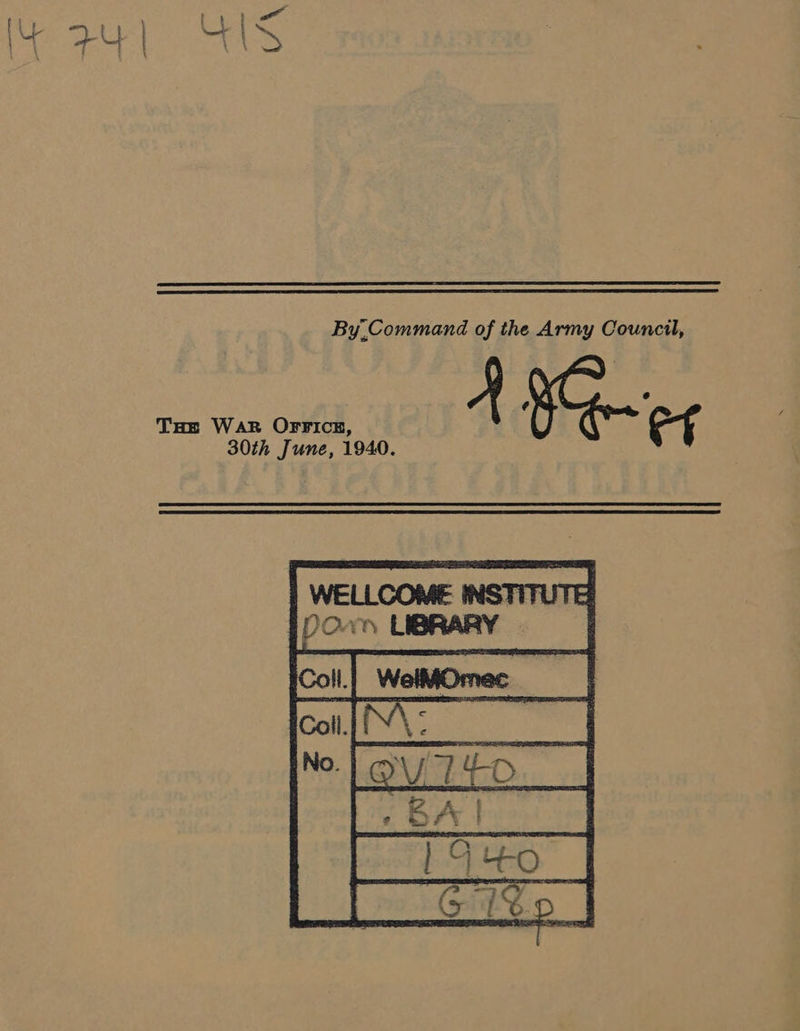 14 741 415
By Command of the Army Council,
THE WAR OFFICE,
30th June, 1940.
WELLCOME INSTITUTE
LIBRARY
Coll. WelMOmec
Coll. M:
No. QV740
.BA1
1940
G78p